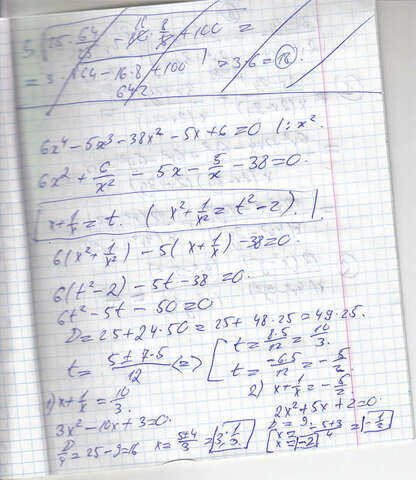 = 3 · √64 - 16·8 + 100 = 3·6 = 18.
6x⁴ - 5x³ - 38x² - 5x + 6 = 0 |: x².
6x² + 6/x² - 5x - 5/x - 38 = 0.
x + 1/x = t. (x² + 1/x² = t² - 2).
6(x² + 1/x²) - 5(x + 1/x) - 38 = 0.
6(t² - 2) - 5t - 38 = 0.
6t² - 5t - 50 = 0
D = 25 + 24·50 = 25 + 48·25 = 49·25.
t = (5 ± 7·5)/12 <=> [ t = 8·5/12 = 10/3.
t = -6·5/12 = -5/2
1) x + 1/x = 10/3.
3x² - 10x + 3 = 0.
D/4 = 25 - 9 = 16 x = (5±4)/3 = 3; 1/3.
2) x + 1/x = -5/2
2x² + 5x + 2 = 0.
D = 9. x = (-5+3)/4 = -1/2
x = -2